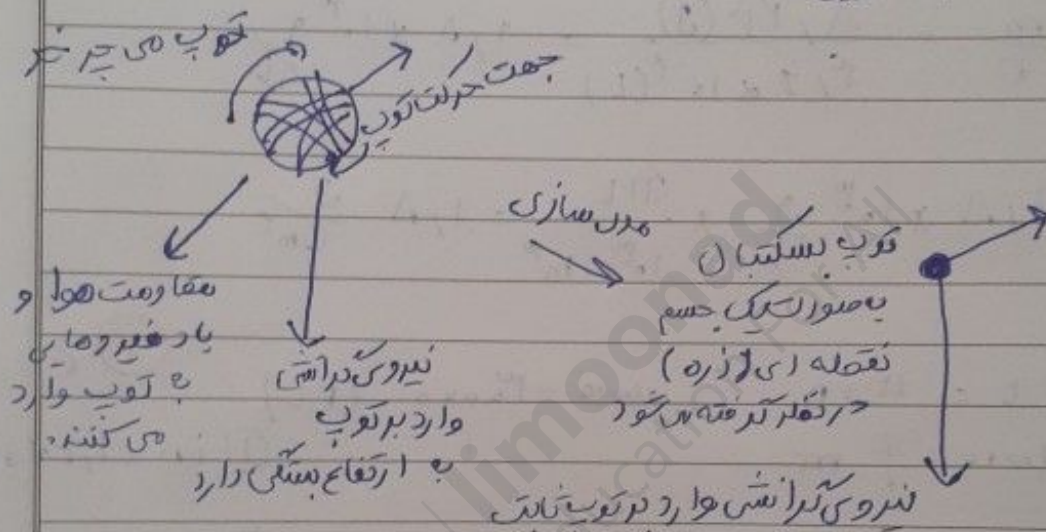 توپ می چرخد
جهت حرکت توپ
مقاومت هوا و
باد نیروهایی
به توپ وارد
می کنند.
نیروی گرانشی
وارد بر توپ
به ارتفاع بستگی دارد
مدل سازی
توپ بسکتبال
به صورت یک جسم
نقطه ای (ذره)
در نظر گرفته می شود
نیروی گرانشی وارد بر توپ ثابت
limoonad